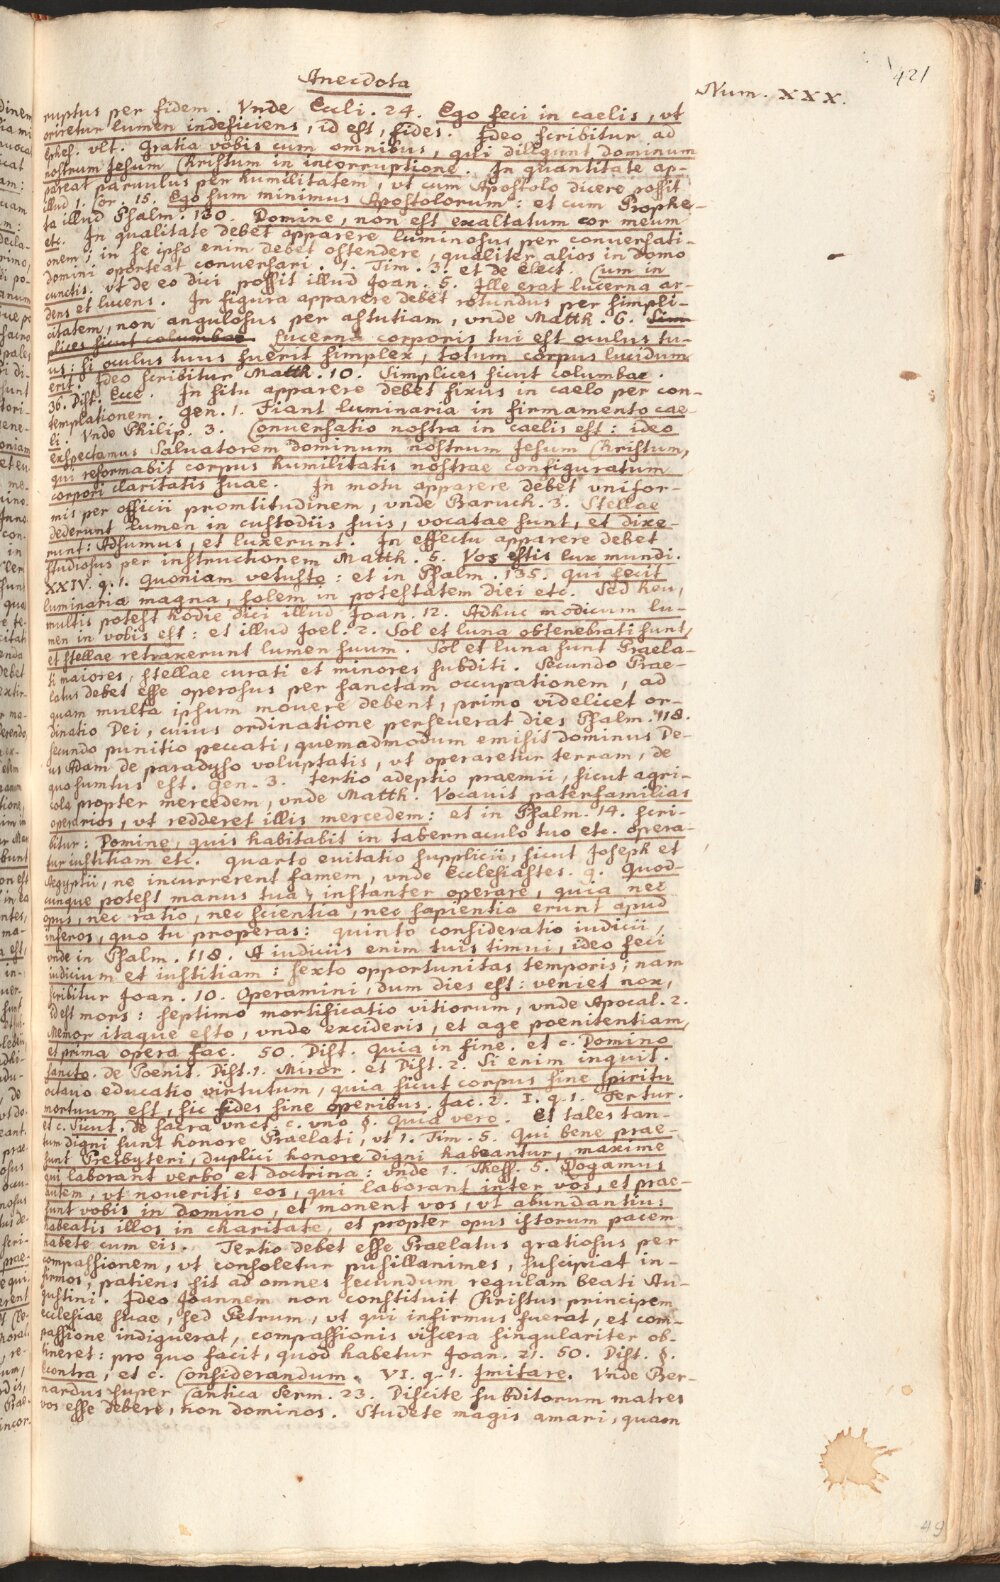 421
Anecdota
Num. XXX.
ruptus per fidem. Vnde Eccli. 24. Ego feci in caelis, vt
oriretur lumen indeficiens, id est, fides. Ideo scribitur ad
Ephes. vlt. Gratia vobis cum omnibus, qui diligunt dominum
nostrum Jesum Christum in incorruptione. In quantitate ap-
pareat paruulus per humilitatem, vt cum Apostolo dicere possit
illud 1. Cor. 15. Ego sum minimus Apostolorum: et cum Prophe-
ta illud Psalm. 130. Domine, non est exaltatum cor meum
etc. In qualitate debet apparere luminosus per conuersati-
onem; in se ipso enim debet ostendere, qualiter alios in domo
domini oporteat conuersari. 1. Tim. 3. et de Elect. Cum in
cunctis. vt de eo dici possit illud Joan. 5. Ille erat lucerna ar-
dens et lucens. In figura apparere debet rotundus per simpli-
citatem, non angulosus per astutiam, vnde Matth. 6. Sim
plices sicut columbae Lucerna corporis tui est oculus tu-
us: si oculus tuus fuerit simplex, totum corpus lucidum
erit. Ideo scribitur Matth. 10. Simplices sicut columbae.
36. Dist. Ecce. In situ apparere debet fixus in caelo per con-
templationem. Gen. 1. Fiant luminaria in firmamento cae-
li. Vnde Philip. 3. Conuersatio nostra in caelis est: ideo
exspectamus Saluatorem dominum nostrum Jesum Christum,
qui reformabit corpus humilitatis nostrae configuratum
corpori claritatis suae. In motu apparere debet vnifor-
mis per officii promtitudinem, vnde Baruch. 3. Stellae
dederunt lumen in custodiis suis, vocatae sunt, et dixe-
runt: Adsumus, et luxerunt. In effectu apparere debet
studiosus per instructionem Matth. 5. Vos estis lux mundi.
XXIV. q. 1. Quoniam vetusto: et in Psalm. 135. Qui fecit
luminaria magna, solem in potestatem diei etc. Sed heu,
multis potest hodie dici illud Joan. 12. Adhuc modicum lu-
men in vobis est: et illud Joel. 2. Sol et luna obtenebrati sunt,
et stellae retraxerunt lumen suum. Sol et luna sunt Praela-
ti maiores, stellae curati et minores subditi. Secundo Prae-
latus debet esse operosus per sanctam occupationem, ad
quam multa ipsum mouere debent, primo videlicet or-
dinatio Dei, cuius ordinatione perseuerat dies Psalm. 118.
secundo punitio peccati, quemadmodum emisit dominus De-
us Adam de paradyso voluptatis, vt operaretur terram, de
quo sumtus est. Gen. 3. tertio adeptio praemii, sicut agri-
cola propter mercedem, vnde Matth. Vocauit paterfamilias
operarios, vt redderet illis mercedem: et in Psalm. 14. scri-
bitur: Domine, quis habitabit in tabernaculo tuo etc. opera-
tur iustitiam etc. quarto euitatio supplicii, sicut Joseph et
Aegyptii, ne incurrerent famem, vnde Ecclesiastes. 9. Quod-
cunque potest manus tua, instanter operare, quia nec
opus, nec ratio, nec scientia, nec sapientia erunt apud
inferos, quo tu properas: quinto consideratio iudicii,
vnde in Psalm. 118. A iudiciis enim tuis timui, ideo feci
iudicium et iustitiam: sexto opportunitas temporis; nam
scribitur Joan. 10. Operamini, dum dies est: veniet nox,
id est mors: septimo mortificatio vitiorum, vnde Apocal. 2.
Memor itaque esto, vnde excideris, et age poenitentiam,
et prima opera fac. 50. Dist. Quia in fine. et c. Domino
sancto. de Poenit. Dist. 1. Miror. et Dist. 2. Si enim inquit.
octauo educatio virtutum, quia sicut corpus sine spiritu
mortuum est, sic fides sine operibus. Jac. 2. I. q. 1. Fertur.
et c. Sicut. de sacra vnct. c. vno §. Quia vero. Et tales tan-
tum digni sunt honore Praelati, vt 1. Tim. 5. Qui bene prae-
sunt Presbyteri, duplici honore digni habeantur, maxime
qui laborant verbo et doctrina: vnde 1. Thess. 5. Rogamus
autem, vt noueritis eos, qui laborant inter vos, et prae-
sunt vobis in domino, et monent vos, vt abundantius
habeatis illos in charitate, et propter opus istorum pacem
habete cum eis. Tertio debet esse Praelatus gratiosus per
compassionem, vt consoletur pusillanimes, suscipiat in-
firmos, patiens sit ad omnes secundum regulam beati Au-
gustini. Ideo Joannem non constituit Christus principem
ecclesiae suae, sed Petrum, vt qui infirmus fuerat, et com-
passione indiguerat, compassionis viscera singulariter ob-
tineret: pro quo facit, quod habetur Joan. 21. 50. Dist. §.
Econtra, et c. Considerandum. VI. q. 1. Imitare. Vnde Ber-
nardus super Cantica Serm. 23. Discite subditorum matres
vos esse debere, non dominos. Studete magis amari, quam
49